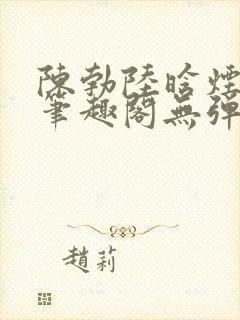 陳勃陸晗煙
筆趣閣無彈
趙莉